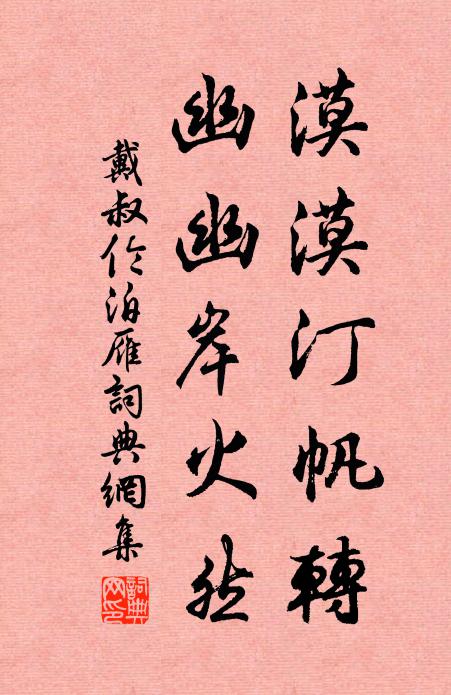 漠漠汀帆轉
幽幽岸火然
戴叔伦泊雁詞典網集
詞典網印